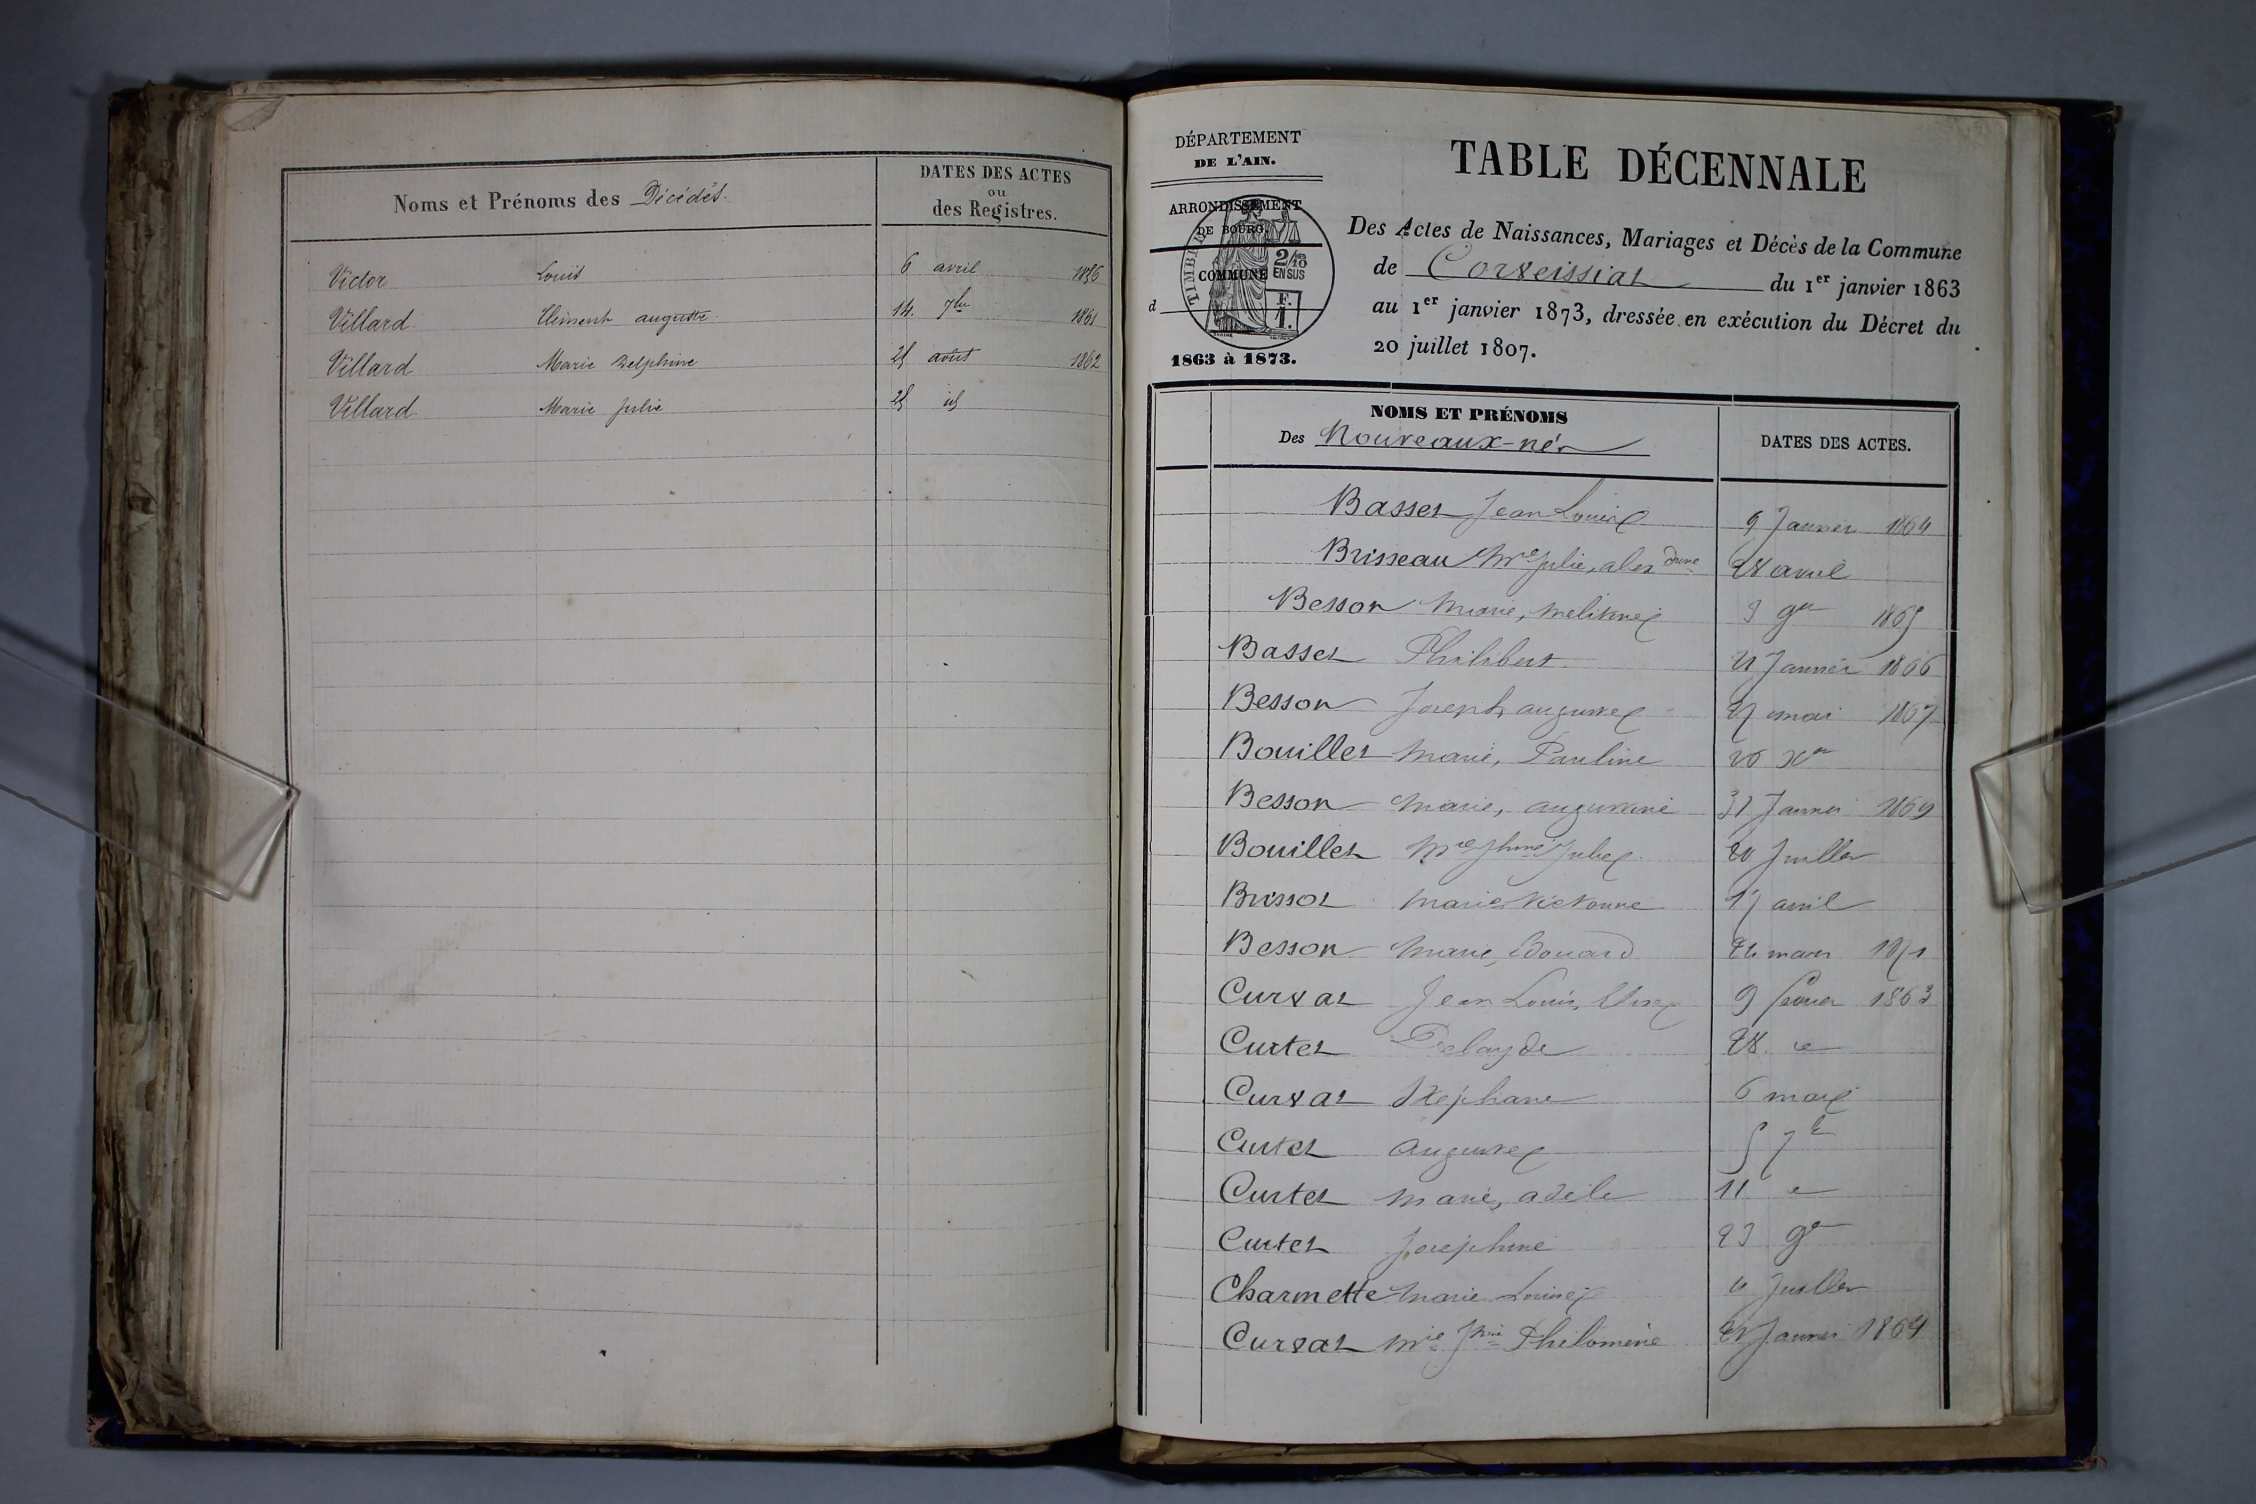 Noms et Prénoms des Décédés.
DATES DES ACTES
ou
des Registres.
Victor Louis 6 avril 1856
Villard Clément auguste 14. 7bre 1861
Villard Marie Delphine 25 août 1862
Villard Marie Julie 25 id
DÉPARTEMENT
DE L'AIN.
ARRONDISSEMENT
DE BOURG.
COMMUNE
d
TIMBRE
2/10
EN SUS
F.
1.
1863 à 1873.
TABLE DÉCENNALE
Des Actes de Naissances, Mariages et Décès de la Commune
de Corveissiat du 1er janvier 1863
au 1er janvier 1873, dressée en exécution du Décret du
20 juillet 1807.
NOMS ET PRÉNOMS
Des Nouveaux-nés
DATES DES ACTES.
Basset Jean Louis Janvier 1864
Brisseau Mie Julie, alex drine 28 avril
Besson Marie, 9er 1865
Basset Philibert Janvier 1866
Besson Joseph auguste mai 1867
Bouillet Marie, Pauline 20 Xer
Besson Marie, augustine 31 Janvier 1869
Bouillet Mie Julie 20 Juillet
Brissot Marie Victorine 17 avril
Besson Marie, Edouard mars 1871
Curvat Jean Louis 9 février 1863
Curtet 28 "
Curvat Stéphane 6 mars
Curtet auguste 5 7b
Curtet Marie, adèle 11 "
Curtet Joséphine 23 9e
Charmette Marie Louise Juillet
Curvat Mie Jhine Philomène Janvier 1864